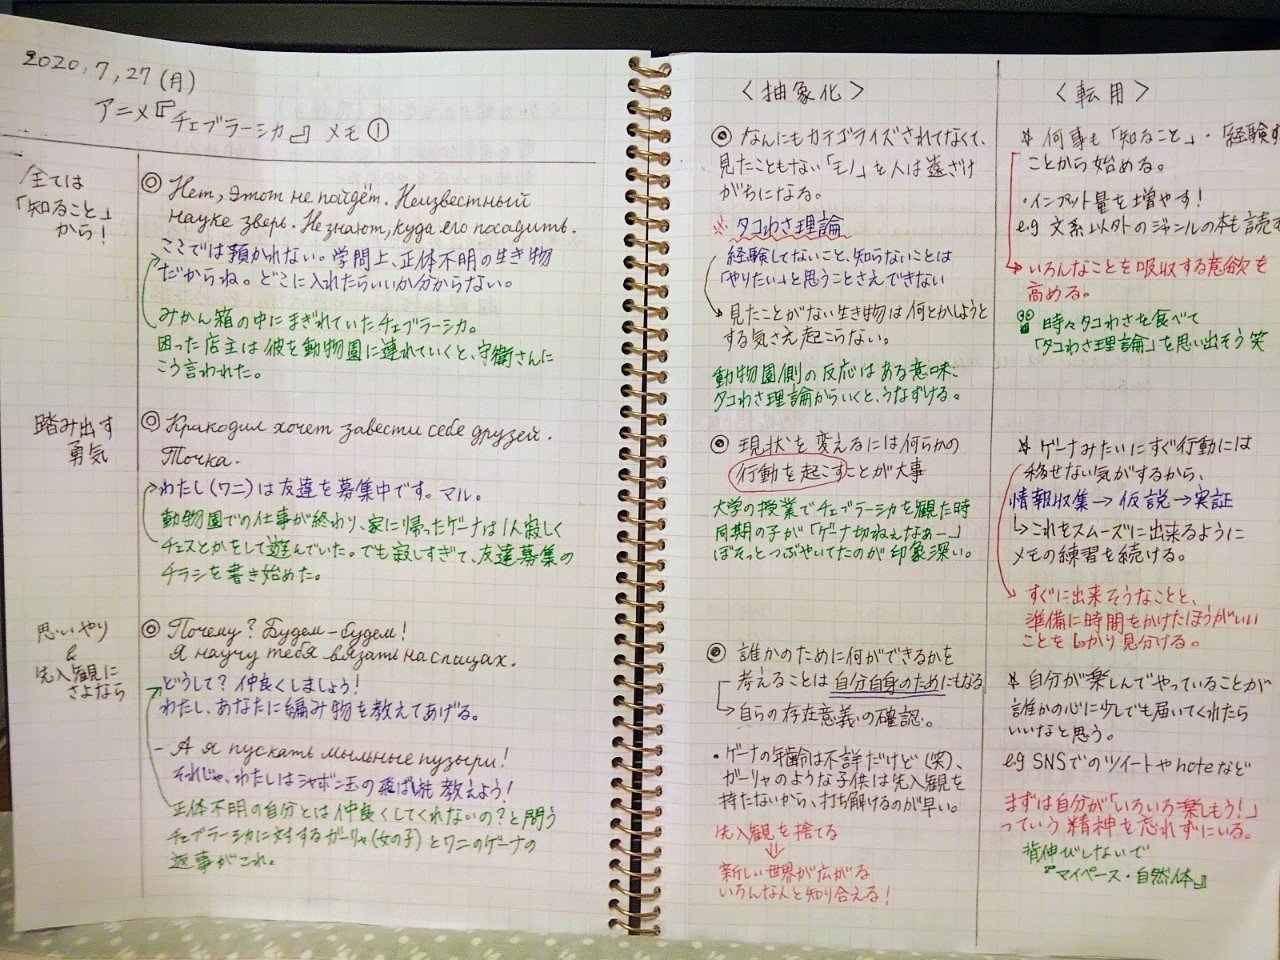 2020,7,27(月)
アニメ『チェブラーシカ』メモ①
全ては
「知ること」
から!
◎ Нет, этот не пойдёт. Неизвестный
науке зверь. Не знают, куда его посадить.
ここでは預かれない。学問上、正体不明の生き物
だからね。どこに入れたらいいか分からない。
みかん箱の中にまぎれていたチェブラーシカ。
困った店主は彼を動物園に連れていくと、守衛さんに
こう言われた。
踏み出す
勇気
◎ Крокодил хочет завести себе друзей.
Точка.
わたし(ワニ)は友達を募集中です。マル。
動物園での仕事が終わり、家に帰ったゲーナは1人寂しく
チェスとかをして遊んでいた。でも寂しすぎて、友達募集の
チラシを書き始めた。
思いやり
&
先入観に
さよなら
◎ Почему? Будем-будем!
Я научу тебя вязать на спицах.
どうして?仲良くしましょう!
わたし、あなたに編み物を教えてあげる。
- А я пускать мыльные пузыри!
それじゃ、わたしはシャボン玉の飛ばし教えよう!
正体不明の自分とは仲良くしてくれないの?と問う
チェブラーシカに対するガーリャ(女の子)とワニのゲーナの
返事がこれ。
〈抽象化〉
◎ なんにもカテゴライズされてなくて、
見たこともない「モノ」を人は遠ざけ
がちになる。
※ タコわさ理論
経験してないこと、知らないことは
「やりたい」と思うことさえできない
→見たことがない生き物は何とかしようと
する気さえ起こらない。
動物園側の反応はある意味、
タコわさ理論からいくと、うなずける。
◎ 現状を変えるには何らかの
行動を起こすことが大事
大学の授業でチェブラーシカを観た時
同期の子が「ゲーナ切ねぇなぁー」
ぼそっとつぶやいてたのが印象深い。
◎ 誰かのために何ができるかを
考えることは自分自身のためにもなる
→自らの存在意義の確認。
・ゲーナの年齢は不詳だけど(笑)、
ガーリャのような子供は先入観を
持たないから、打ち解けるのが早い。
先入観を捨てる
↓
新しい世界が広がる
いろんな人と知り合える!
〈転用〉
☆ 何事も「知ること」・「経験す
ことから始める。
・インプット量を増やす!
e.g 文系以外のジャンルの本も読む
→いろんなことを吸収する意欲を
高める。
時々タコわさを食べて
「タコわさ理論」を思い出そう笑
☆ ゲーナみたいにすぐ行動には
移せない気がするから、
情報収集→仮説→実証
→これをスムーズに出来るように
メモの練習を続ける。
→すぐに出来そうなことと、
準備に時間をかけたほうがいい
ことをしっかり見分ける。
☆ 自分が楽しんでやっていることが
誰かの心に少しでも届いてくれたら
いいなと思う。
e.g SNSでのツイートやnoteなど
まずは自分が「いろいろ楽しもう!」
っていう精神を忘れずにいる。
背伸びしないで
『マイペース・自然体』